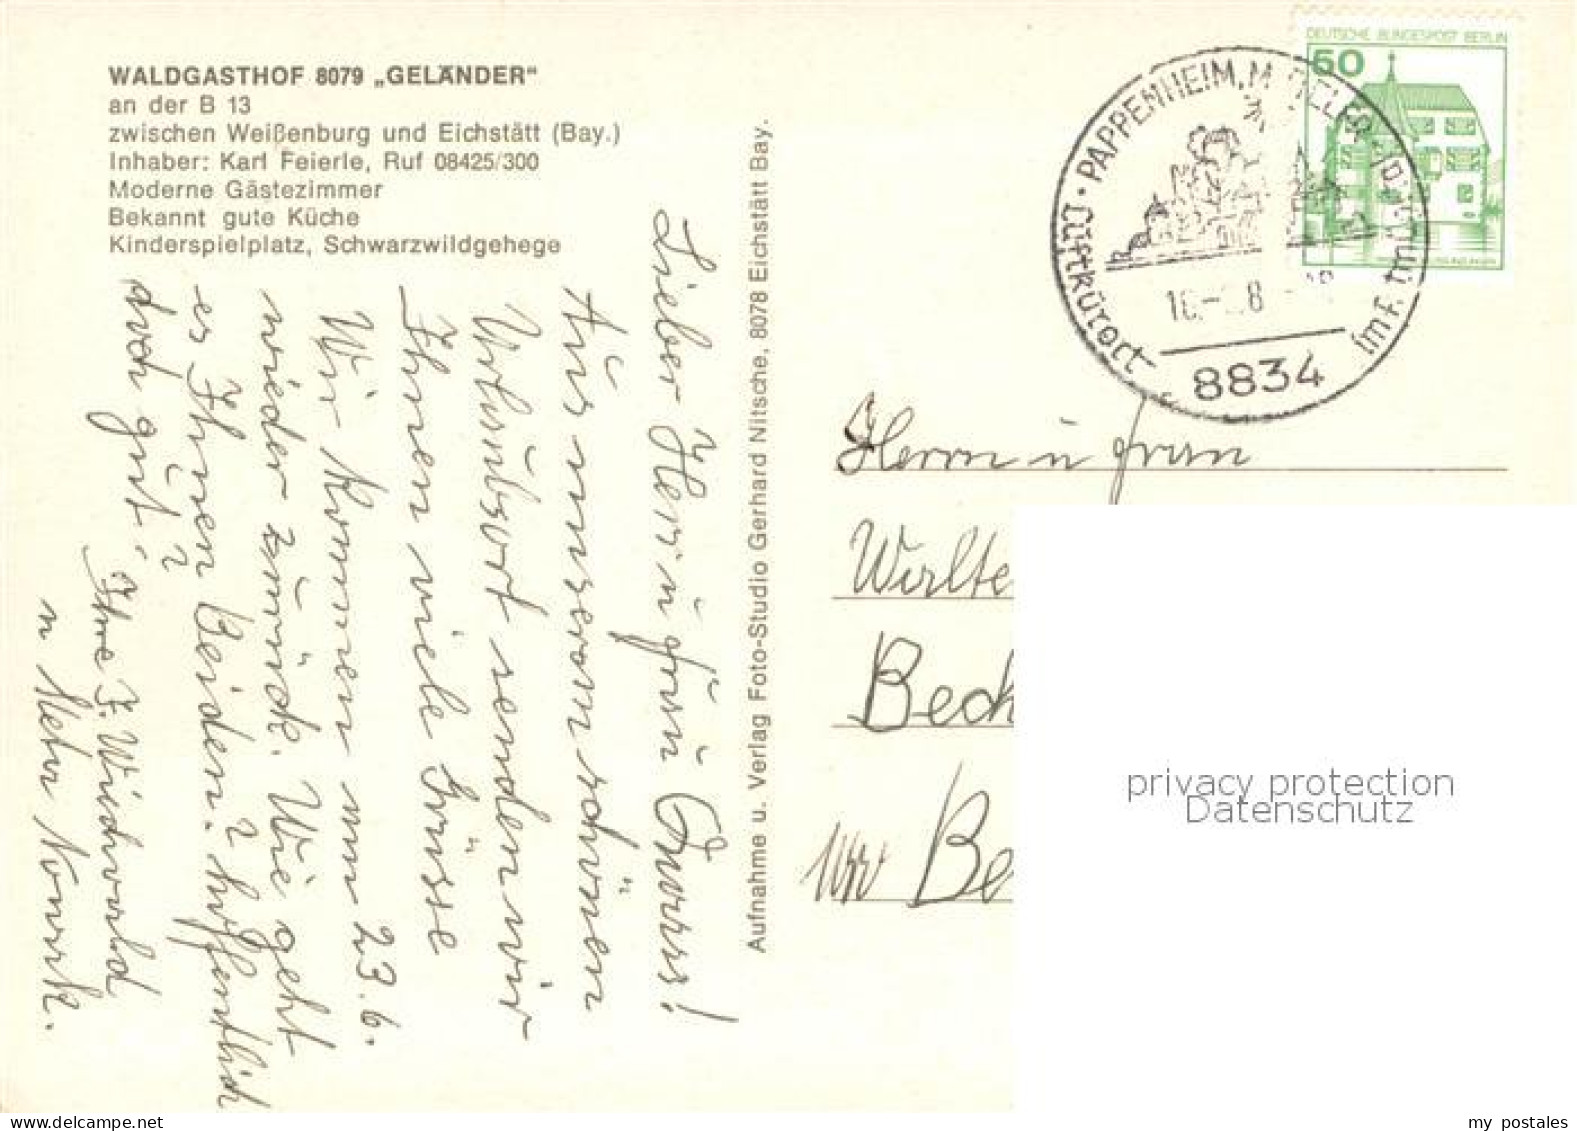 WALDGASTHOF 8079 „GELÄNDER"
an der B 13
zwischen Weißenburg und Eichstätt (Bay.)
Inhaber: Karl Feierle, Ruf 08425/300
Moderne Gästezimmer
Bekannt gute Küche
Kinderspielplatz, Schwarzwildgehege
Lieber Herr u frau
Aus unserem schönen
Urlaubsort senden wir
Ihnen viele Grüsse
Wir kommen am 23.6.
wieder zurück. Wie geht
es Ihnen Beiden? hoffentlich
doch gut,
Ihre F. Wiedwald
u
Aufnahme u. Verlag Foto-Studio Gerhard Nitsche, 8078 Eichstätt Bay.
DEUTSCHE BUNDESPOST BERLIN
50
PAPPENHEIM, MITTELFR.
Luftkurort
im
8834
Herrn u frau
Walte
Bech
Be
privacy protection
Datenschutz
www.delcampe.net
my postales